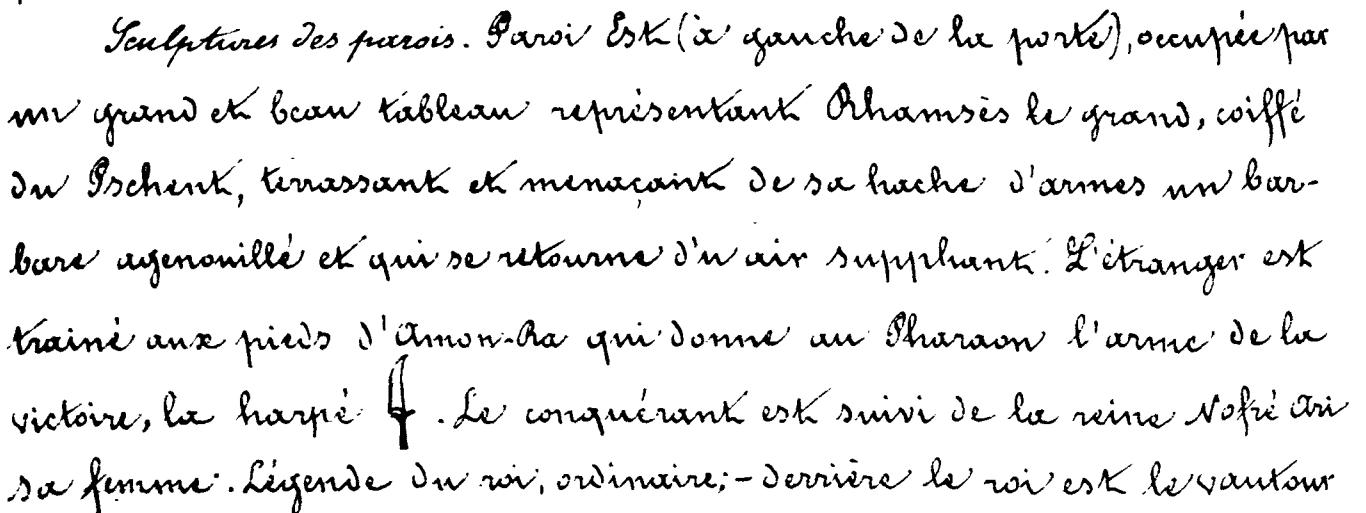 Sculptures des parois. Paroi Est (à gauche de la porte), occupée par
un grand et beau tableau représentant Rhamsès le grand, coiffé
du Pschent, terrassant et menaçant de sa hache d'armes un bar-
bare agenouillé et qui se retourne d'u air suppliant. L'étranger est
trainé aux pieds d'Amon-Ra qui donne au Pharaon l'arme de la
victoire, la harpé . Le conquérant est suivi de la reine Nofré Ari
sa femme. Légende du roi, ordinaire; - derrière le roi est le vautour